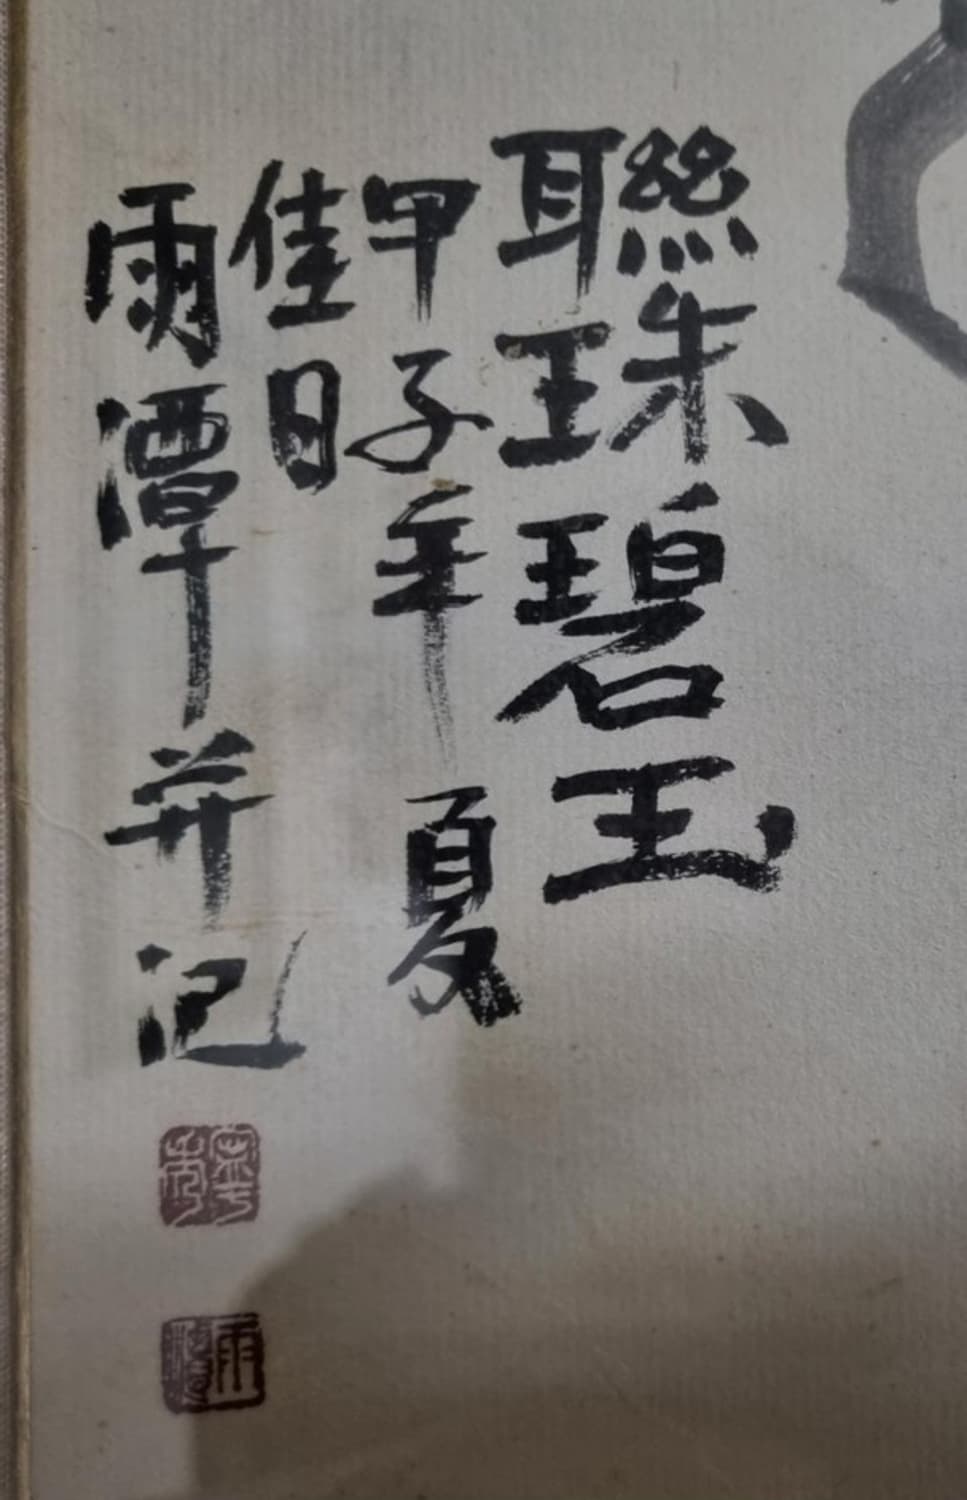 聯珠碧玉
甲子年夏
佳日
雨潭并记
雨潭